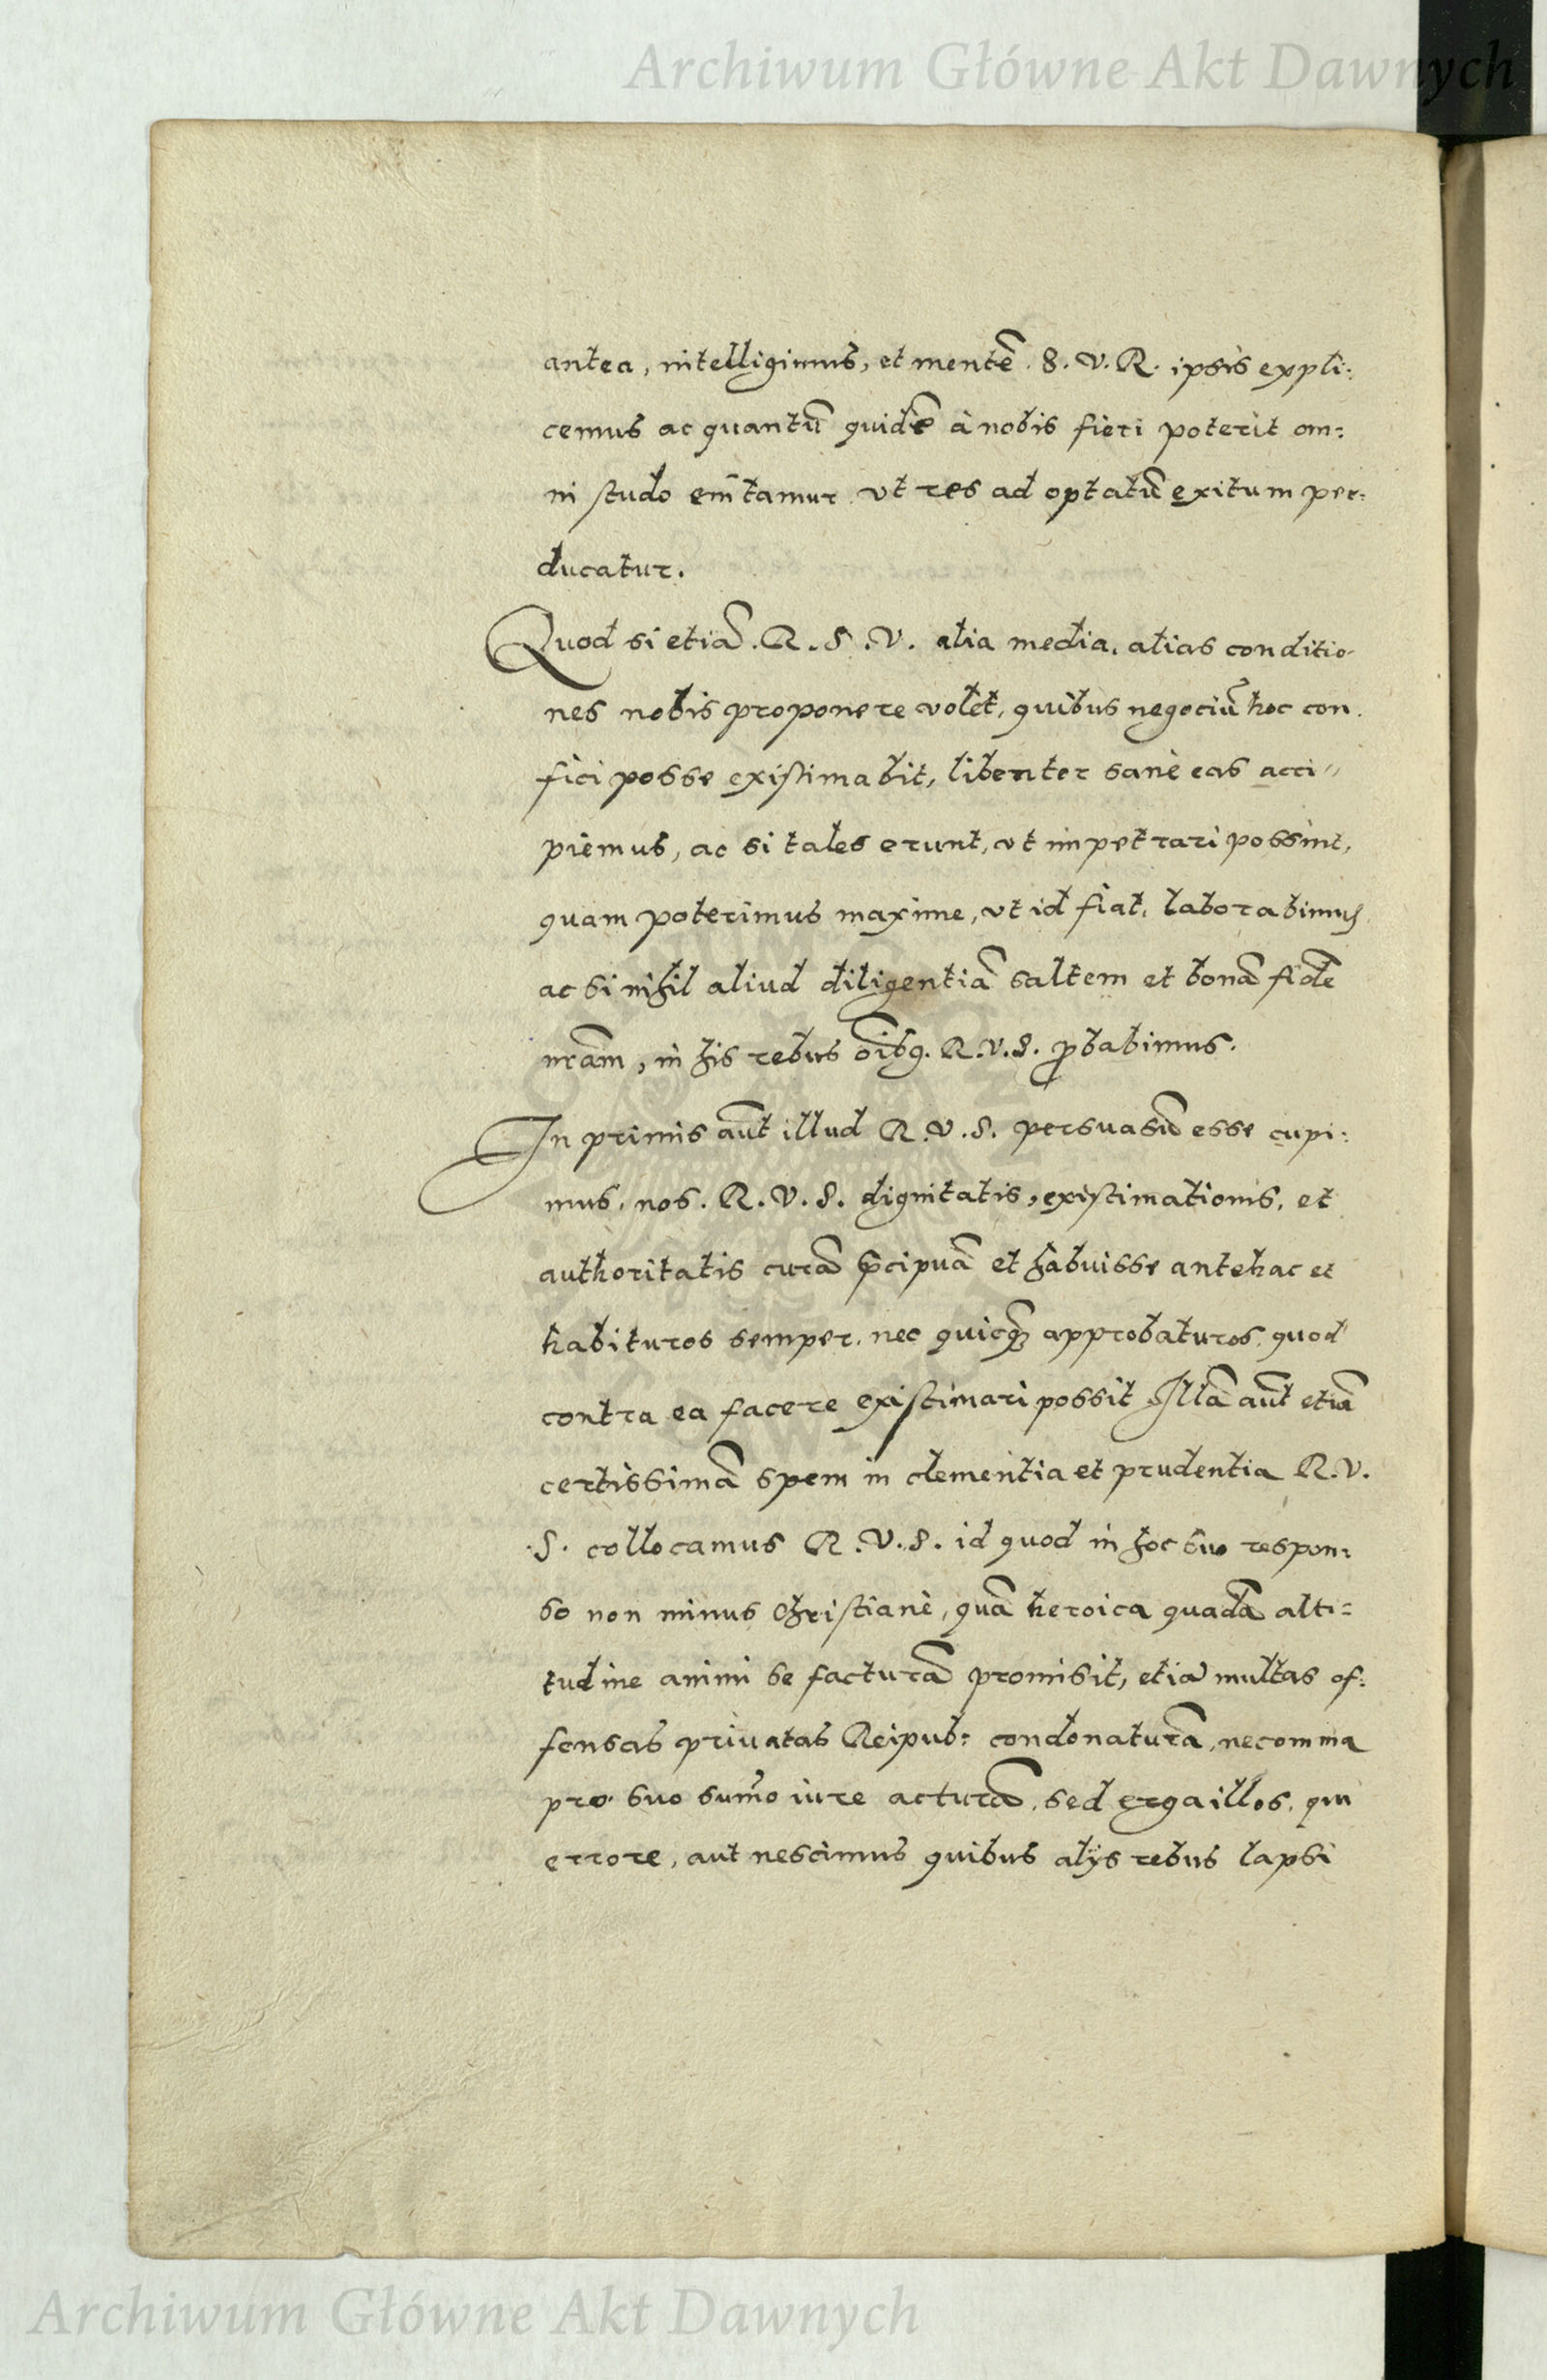 Archiwum Główne Akt Dawnych
antea, intelligimus, et mentẽ. S. V. R. ipsis expli:
cemus ac quantũ quidẽ à nobis fieri poterit om:
ni studo enĩtamur vt res ad optatũ exitum per:
ducatur.
Quod si etiã. R. S. V. alia media, alias conditio-
nes nobis proponere volet, quibus negociũ hoc con.
fici posse existimabit, libenter sanè eas acci"
piemus, ac si tales erunt, vt impetrari possint,
quam poterimus maxime, vt id fiat, laborabimus
ac si nihil aliud diligentiã saltem et bonã fidẽ
nrãm, in his rebus oĩbq. R. V. S. ꝓbabimus.
In primis aũt illud R. V. S. persuasũ esse cupi:
mus, nos. R. V. S. dignitatis, existimationis, et
authoritatis curã p̃cipuã et habuisse antehac et
habituros semper, nec quicq̃ approbaturos, quod
contra ea facere existimari possit Illã aũt etiã
certissimã spem in clementia et prudentia R. V.
S. collocamus R. V. S. id quod in hoc suo respon:
so non minus Christianè, quã heroica quadã alti=
tudine animi se facturã promisit, etiã multas of:
fensas priuatas Reipub: condonaturã, nec omnia
pro suo sum̃o iure acturã, sed erga illos, qui
errore, aut nescimus quibus alÿs rebus lapsi
Archiwum Główne Akt Dawnych